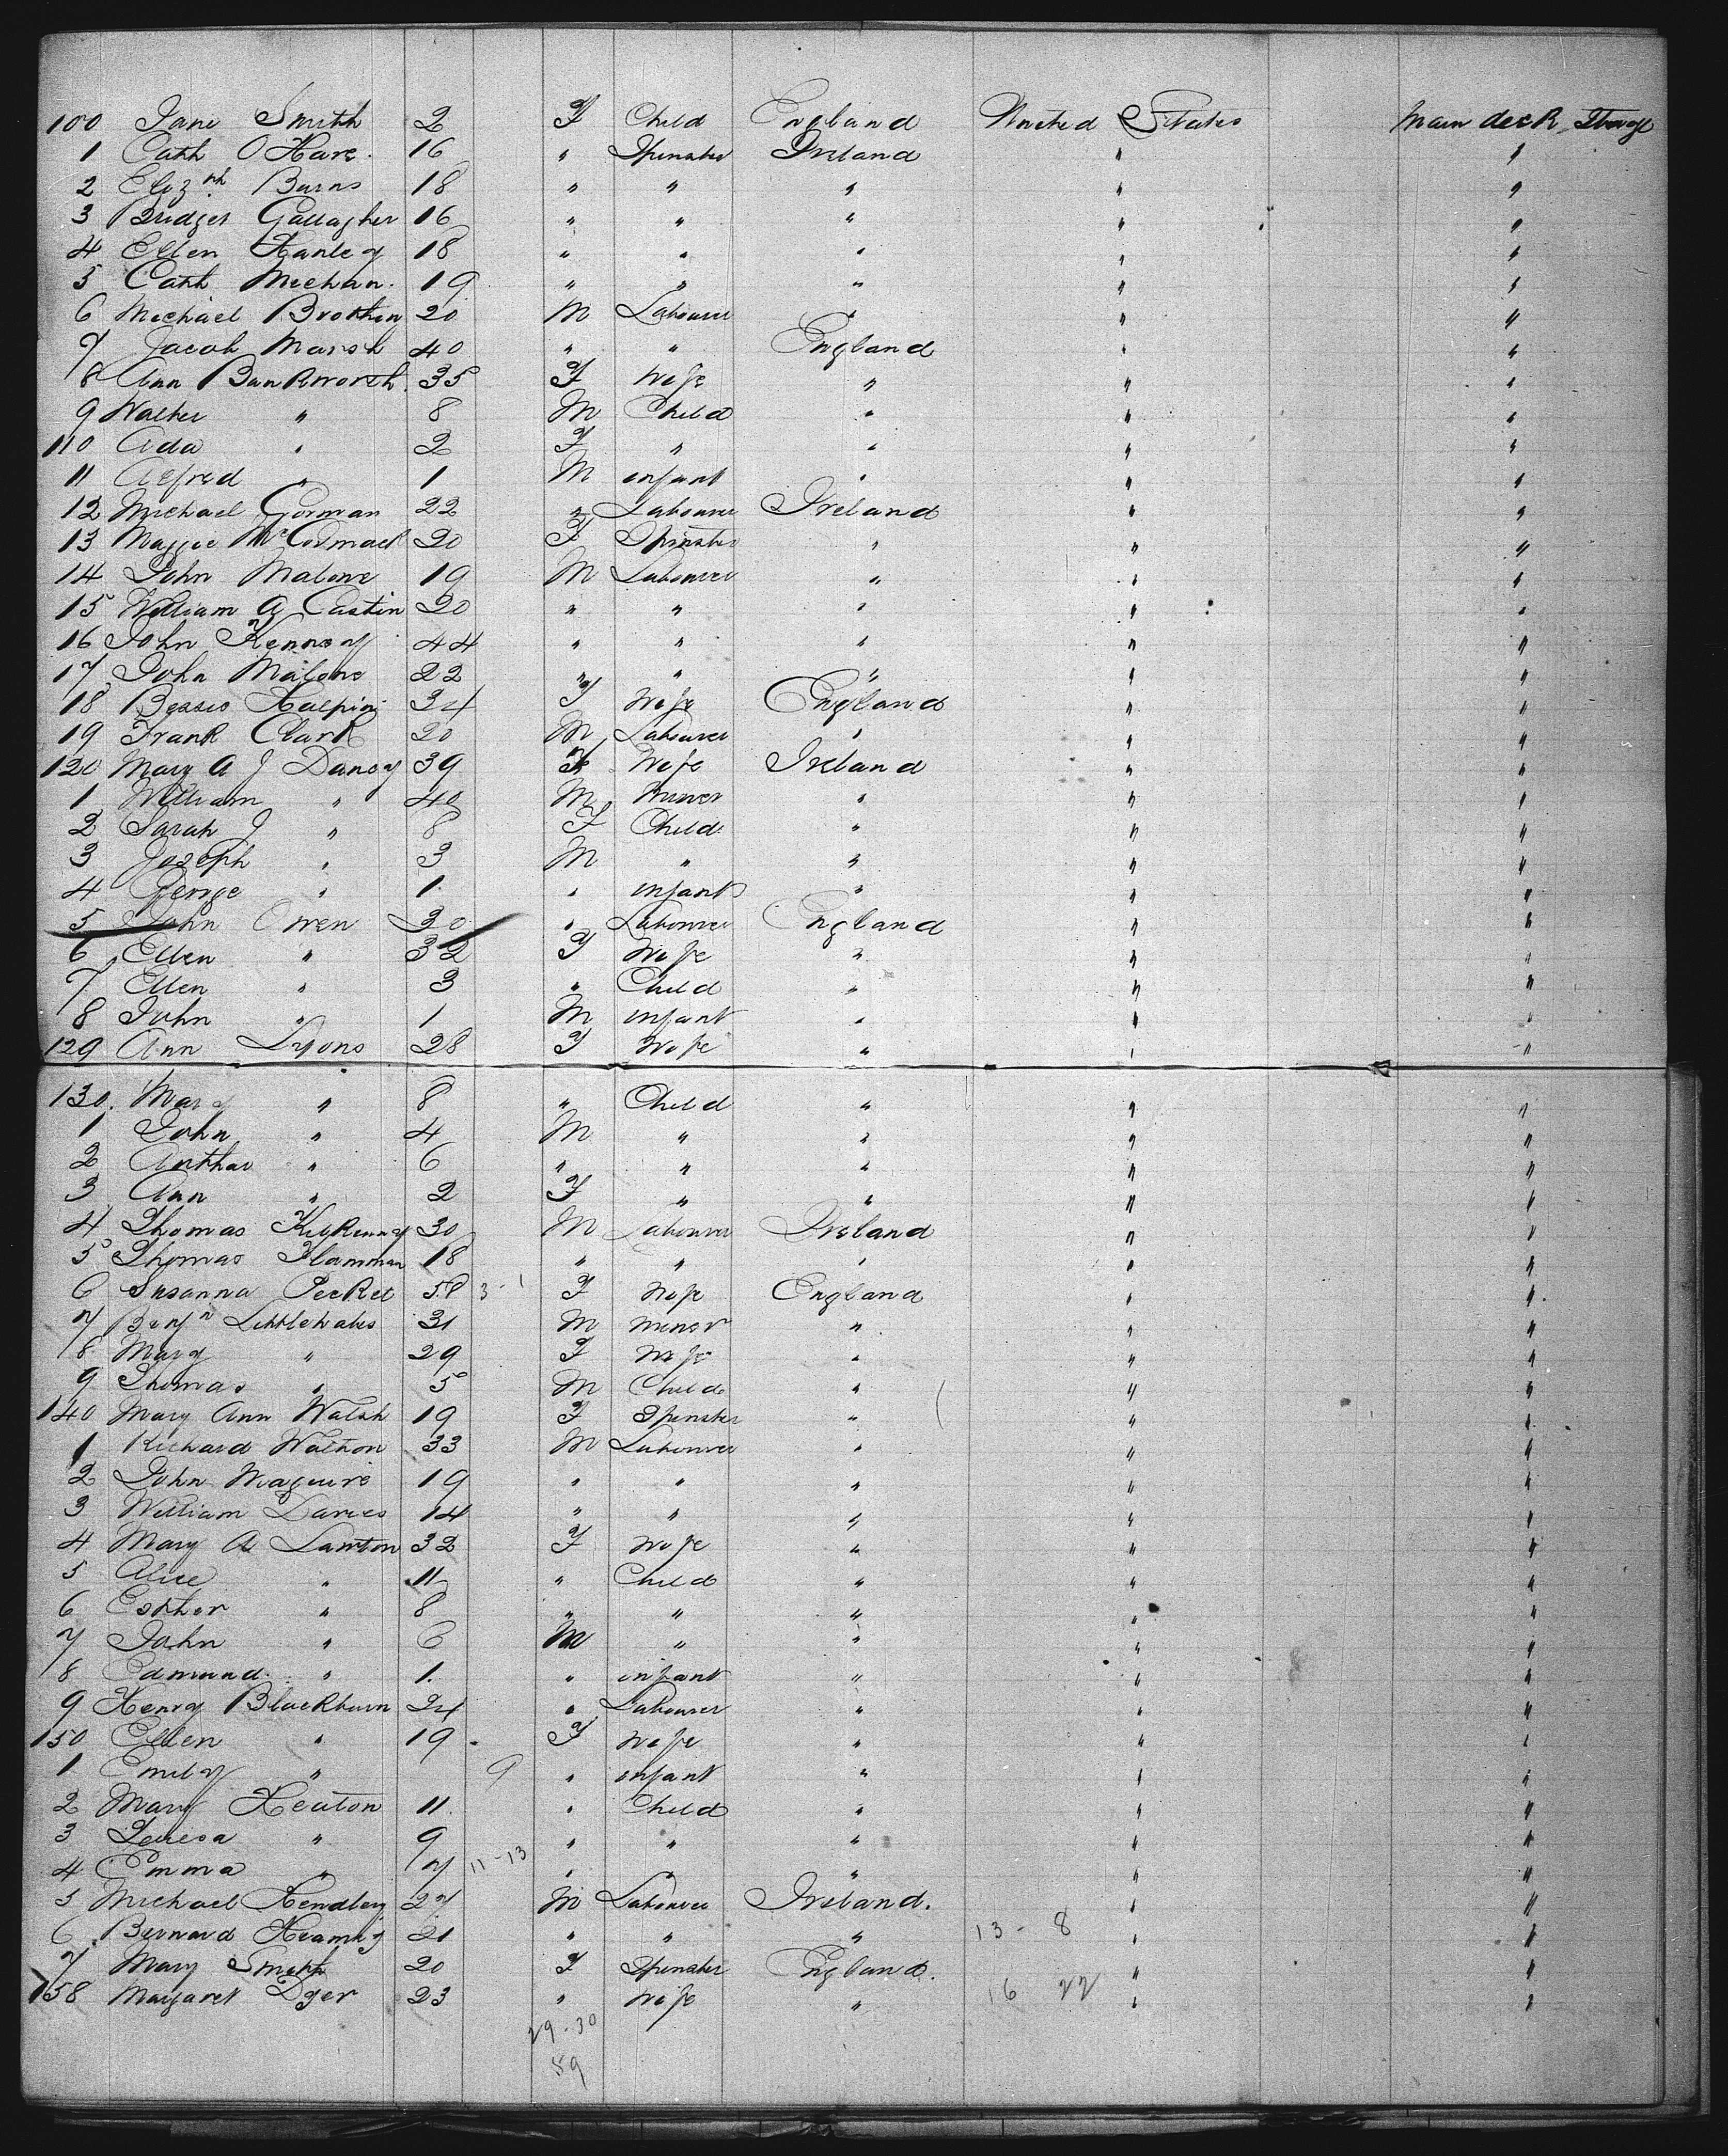 100 Jane Smith 2 F Child England United States Main deck Steerage
1 Cath O Hare. 16 " Spinster Ireland " "
2 Elizth Burns 18 " " " " "
3 Bridget Gallagher 16 " " " " "
4 Ellen Hanley 18 " " " " "
5 Cath Meehan. 19 " " " " "
6 Michael 20 M Labourer " " "
7 Jacob Marsh 40 " " England " "
8 Ann Bankworth 35 F Wife " " "
9 Walter " 8 M Child " " "
110 Ada " 2 F " " " "
11 Alfred " 1 M infant " " "
12 Michael Gorman 22 " Labourer Ireland " "
13 Maggie McCormack 20 F Spinster " " "
14 John Malone 19 M Labourer " " "
15 William G Castin 20 " " " " "
16 John Kenney 44 " " " " "
17 John Malone 22 " " " " "
18 Bessie Halpin 34 F Wife England " "
19 Frank Clark 20 M Labourer " " "
120 Mary A J Dancy 39 F Wife Ireland " "
1 William " 40 M Miner " " "
2 Sarah J " 8 F Child " " "
3 Joseph " 3 M " " " "
4 George " 1 " infant " " "
5 John Owen 30 " Labourer England " "
6 Ellen " 32 F Wife " " "
7 Ellen " 3 " Child " " "
8 John " 1 M infant " " "
129 Ann Lyons 28 F Wife " " "
130. Mary " 8 " Child " " "
1 John " 4 M " " " "
2 Arthur " 6 " " " " "
3 Ann " 2 F " " " "
4 Thomas Kilkenny 30 M Labourer Ireland " "
5 Thomas Hamman 18 " " " " "
6 Susanna Pecket 58 3-1 F Wife England " "
7 Benjn Littlehales 31 M miner " " "
8 Mary " 29 F Wife " " "
9 Thomas " 5 M Child " " "
140 Mary Ann Walsh 19 F Spinster " " "
1 Richard Walton 33 M Labourer " " "
2 John Maguire 19 " " " " "
3 William Davies 14 " " " " "
4 Mary A Lawton 32 F Wife " " "
5 Alice " 11 " Child " " "
6 Esther " 8 " " " " "
7 John " 6 M " " " "
8 Edmund. " 1. " infant " " "
9 Henry Blackburn 24 " Labourer " " "
150 Ellen " 19 F Wife " " "
1 Emily " 9 " infant " " "
2 Mary Heaton 11 " Child " " "
3 Teresa " 9 " " " " "
4 Emma " 7 11-13 " " " " "
5 Michael Hendley 27 M Labourer Ireland. " "
6 Bernard 21 " " " 13-8 " "
7 Mary Smith 20 F Spinster England. " "
158 Margaret Dyer 23 " Wife " 16 22 " "
29-30
59